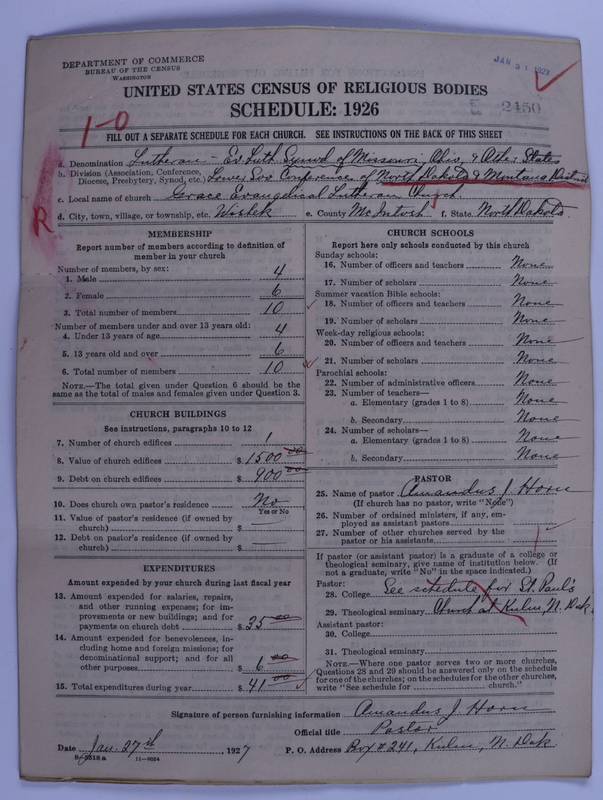 DEPARTMENT OF COMMERCE
BUREAU OF THE CENSUS
WASHINGTON
JAN 31 1927
UNITED STATES CENSUS OF RELIGIOUS BODIES
SCHEDULE: 1926
2450
1-0
FILL OUT A SEPARATE SCHEDULE FOR EACH CHURCH. SEE INSTRUCTIONS ON THE BACK OF THIS SHEET
a. Denomination Lutheran - Ev. Luth. Synod of Missouri, Ohio, & Other States
b. Division (Association, Conference, Diocese, Presbytery, Synod, etc.) Lower Soo Conference of North Dakota & Montana District
c. Local name of church Grace Evangelical Lutheran Church
d. City, town, village, or township, etc. Wishek e. County McIntosh f. State North Dakota
R
MEMBERSHIP
Report number of members according to definition of
member in your church
Number of members, by sex:
1. Male 4
2. Female 6
3. Total number of members 10
Number of members under and over 13 years old:
4. Under 13 years of age 4
5. 13 years old and over 6
6. Total number of members 10
NOTE.—The total given under Question 6 should be the
same as the total of males and females given under Question 3.
CHURCH BUILDINGS
See instructions, paragraphs 10 to 12
7. Number of church edifices 1
8. Value of church edifices $ 1500 00
9. Debt on church edifices $ 900 00
10. Does church own pastor's residence No
Yes or No
11. Value of pastor's residence (if owned by
church) $
12. Debt on pastor's residence (if owned by
church) $
EXPENDITURES
Amount expended by your church during last fiscal year
13. Amount expended for salaries, repairs,
and other running expenses; for im-
provements or new buildings; and for
payments on church debt $ 35 00
14. Amount expended for benevolences, in-
cluding home and foreign missions; for
denominational support; and for all
other purposes $ 6 00
15. Total expenditures during year $ 41 00
CHURCH SCHOOLS
Report here only schools conducted by this church
Sunday schools:
16. Number of officers and teachers None
17. Number of scholars None
Summer vacation Bible schools:
18. Number of officers and teachers None
19. Number of scholars None
Week-day religious schools:
20. Number of officers and teachers None
21. Number of scholars None
Parochial schools:
22. Number of administrative officers None
23. Number of teachers—
a. Elementary (grades 1 to 8) None
b. Secondary None
24. Number of scholars—
a. Elementary (grades 1 to 8) None
b. Secondary None
PASTOR
25. Name of pastor Amandus J. Horn
(If church has no pastor, write "None")
26. Number of ordained ministers, if any, em-
ployed as assistant pastors
27. Number of other churches served by the
pastor or his assistants
If pastor (or assistant pastor) is a graduate of a college or
theological seminary, give name of institution below. (If
not a graduate, write "No" in the space indicated.)
Pastor:
28. College See schedule for St. Paul's
29. Theological seminary Church at Kulm, N. Dak.
Assistant pastor:
30. College
31. Theological seminary
NOTE.—Where one pastor serves two or more churches,
Questions 28 and 29 should be answered only on the schedule
for one of the churches; on the schedules for the other churches,
write "See schedule for church."
Signature of person furnishing information Amandus J. Horn
Official title Pastor
Date Jan. 27th, 1927 P. O. Address Box # 241, Kulm, N. Dak
8-5518 a 11-9024